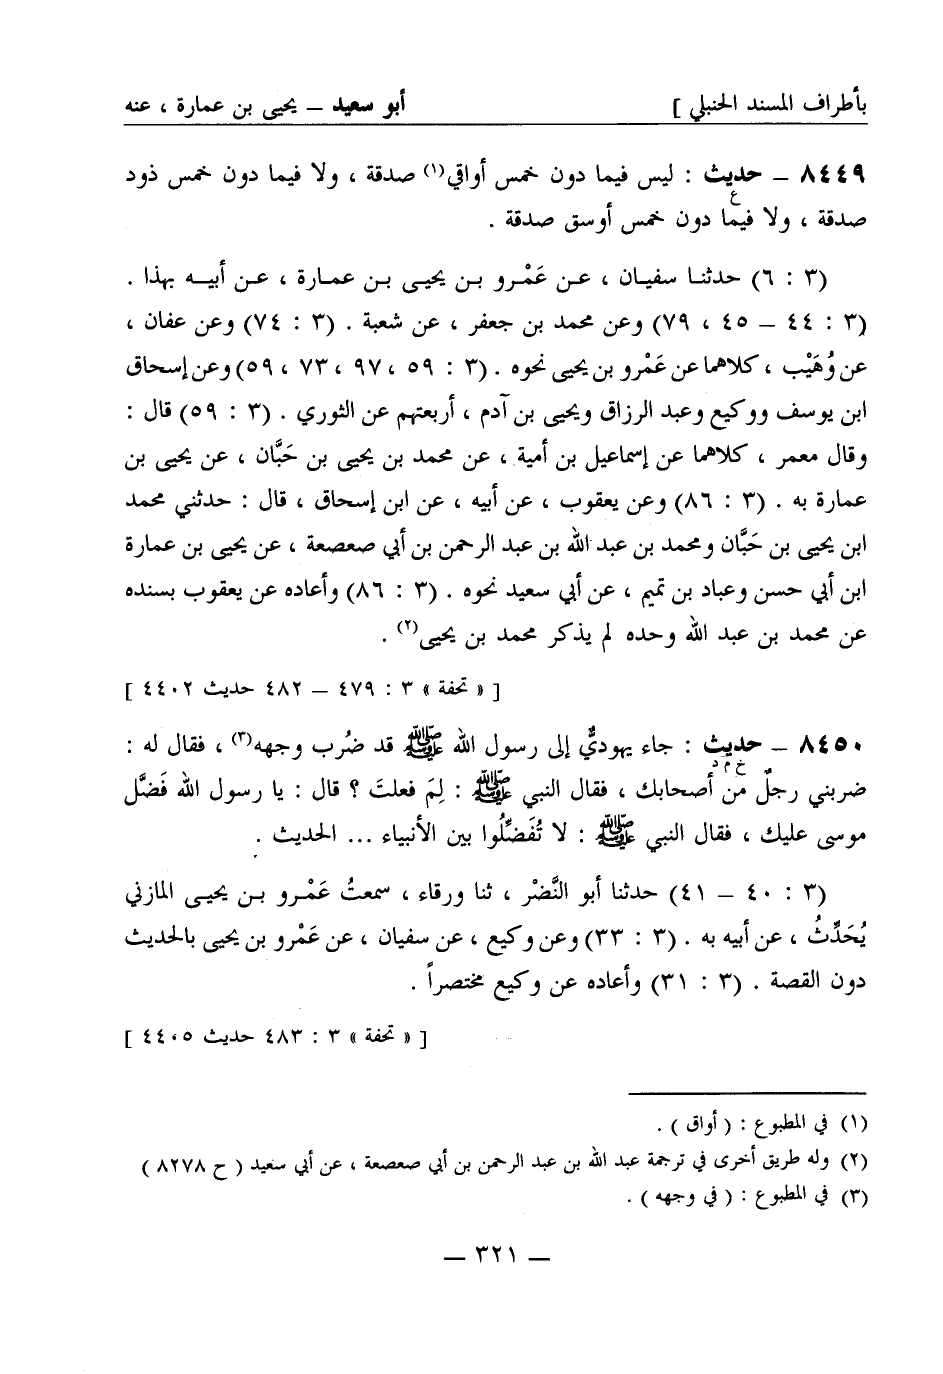 بأطراف المسند الحنبلي ] أبو سعيد – يحيى بن عمارة ، عنه
٨٤٤٩ – حديث : ليس فيما دون خمس أواقي(١) صدقة ، ولا فيما دون خمس ذود
ع
صدقة ، ولا فيما دون خمس أوسق صدقة .
(٣ : ٦) حدثنا سفيان ، عن عَمْرو بن يحيى بن عمارة ، عن أبيه بهذا .
(٣ : ٤٤ – ٤٥ ، ٧٩) وعن محمد بن جعفر ، عن شعبة . (٣ : ٧٤) وعن عفان ،
عن وُهَيْب ، كلاهما عن عَمْرو بن يحيى نحوه . (٣ : ٥٩ ، ٩٧ ، ٧٣ ، ٥٩) وعن إسحاق
ابن يوسف ووكيع وعبد الرزاق ويحيى بن آدم ، أربعتهم عن الثوري . (٣ : ٥٩) قال :
وقال معمر ، كلاهما عن إسماعيل بن أمية ، عن محمد بن يحيى بن حَبَّان ، عن يحيى بن
عمارة به . (٣ : ٨٦) وعن يعقوب ، عن أبيه ، عن ابن إسحاق ، قال : حدثني محمد
ابن يحيى بن حَبَّان ومحمد بن عبد الله بن عبد الرحمن بن أبي صعصعة ، عن يحيى بن عمارة
ابن أبي حسن وعباد بن تميم ، عن أبي سعيد نحوه . (٣ : ٨٦) وأعاده عن يعقوب بسنده
عن محمد بن عبد الله وحده لم يذكر محمد بن يحيى(٢) .
[ « تحفة » ٣ : ٤٧٩ – ٤٨٢ حديث ٤٤٠٢ ]
٨٤٥٠ – حديث : جاء يهوديٌّ إلى رسول الله ﷺ قد ضُرب وجهه(٣) ، فقال له :
خ م د
ضربني رجلٌ من أصحابك ، فقال النبي ﷺ : لِمَ فعلتَ ؟ قال : يا رسول الله فَضَّل
موسى عليك ، فقال النبي ﷺ : لا تُفَضِّلُوا بين الأنبياء ... الحديث .
(٣ : ٤٠ – ٤١) حدثنا أبو النَّضْر ، ثنا ورقاء ، سمعتُ عَمْرو بن يحيى المازني
يُحَدِّثُ ، عن أبيه به . (٣ : ٣٣) وعن وكيع ، عن سفيان ، عن عَمْرو بن يحيى بالحديث
دون القصة . (٣ : ٣١) وأعاده عن وكيع مختصراً .
[ « تحفة » ٣ : ٤٨٣ حديث ٤٤٠٥ ]
(١) في المطبوع : ( أواق ) .
(٢) وله طريق أخرى في ترجمة عبد الله بن عبد الرحمن بن أبي صعصعة ، عن أبي سعيد ( ح ٨٢٧٨ )
(٣) في المطبوع : ( في وجهه ) .
– ٣٢١ –